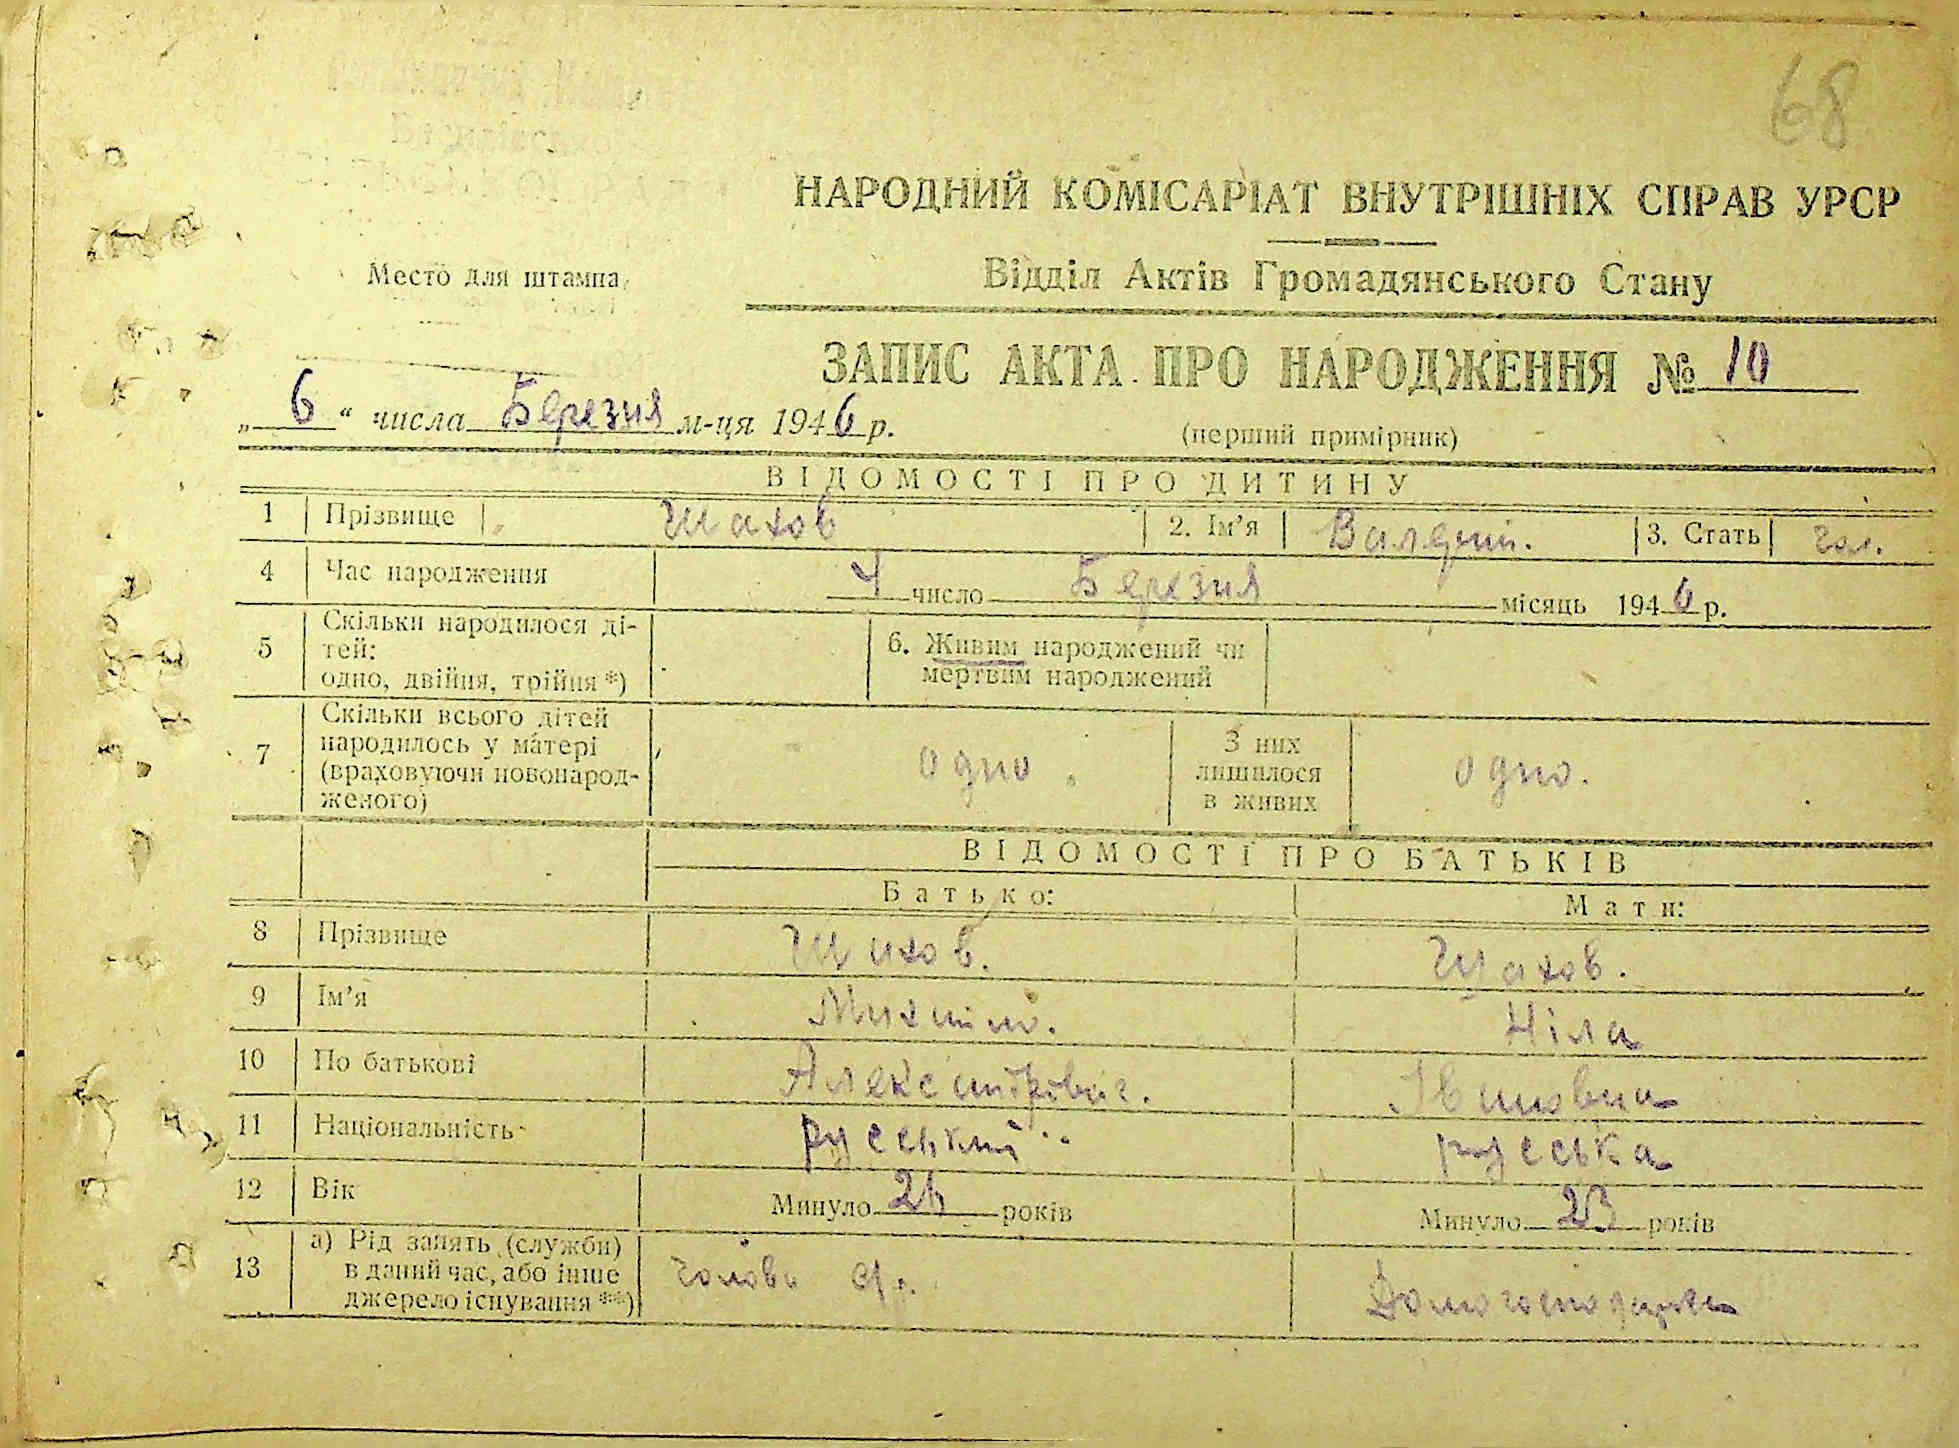 68
НАРОДНИЙ КОМІСАРІАТ ВНУТРІШНІХ СПРАВ УРСР
Место для штампа
Відділ Актів Громадянського Стану
ЗАПИС АКТА ПРО НАРОДЖЕННЯ № 10
„ 6 “ числа Березня м-ця 1946 р.
(перший примірник)
ВІДОМОСТІ ПРО ДИТИНУ
1 Прізвище Шахов 2. Ім’я Валерій. 3. Стать чол.
4 Час народження 4 число Березня місяць 1946 р.
5 Скільки народилося ді-
тей:
одно, двійня, трійня *)
6. Живим народжений чи
мертвим народжений
7 Скільки всього дітей
народилось у матері
(враховуючи новонарод-
женого)
одно.
З них
лишилося
в живих
одно.
ВІДОМОСТІ ПРО БАТЬКІВ
Батько: Мати:
8 Прізвище Шахов. Шахов.
9 Ім’я Михайло. Ніла
10 По батькові Александрович. Івановна
11 Національність руський руська
12 Вік Минуло 26 років Минуло 23 років
13 а) Рід занять (служби)
в даний час, або інше
джерело існування **)
голова
Домогосподарка